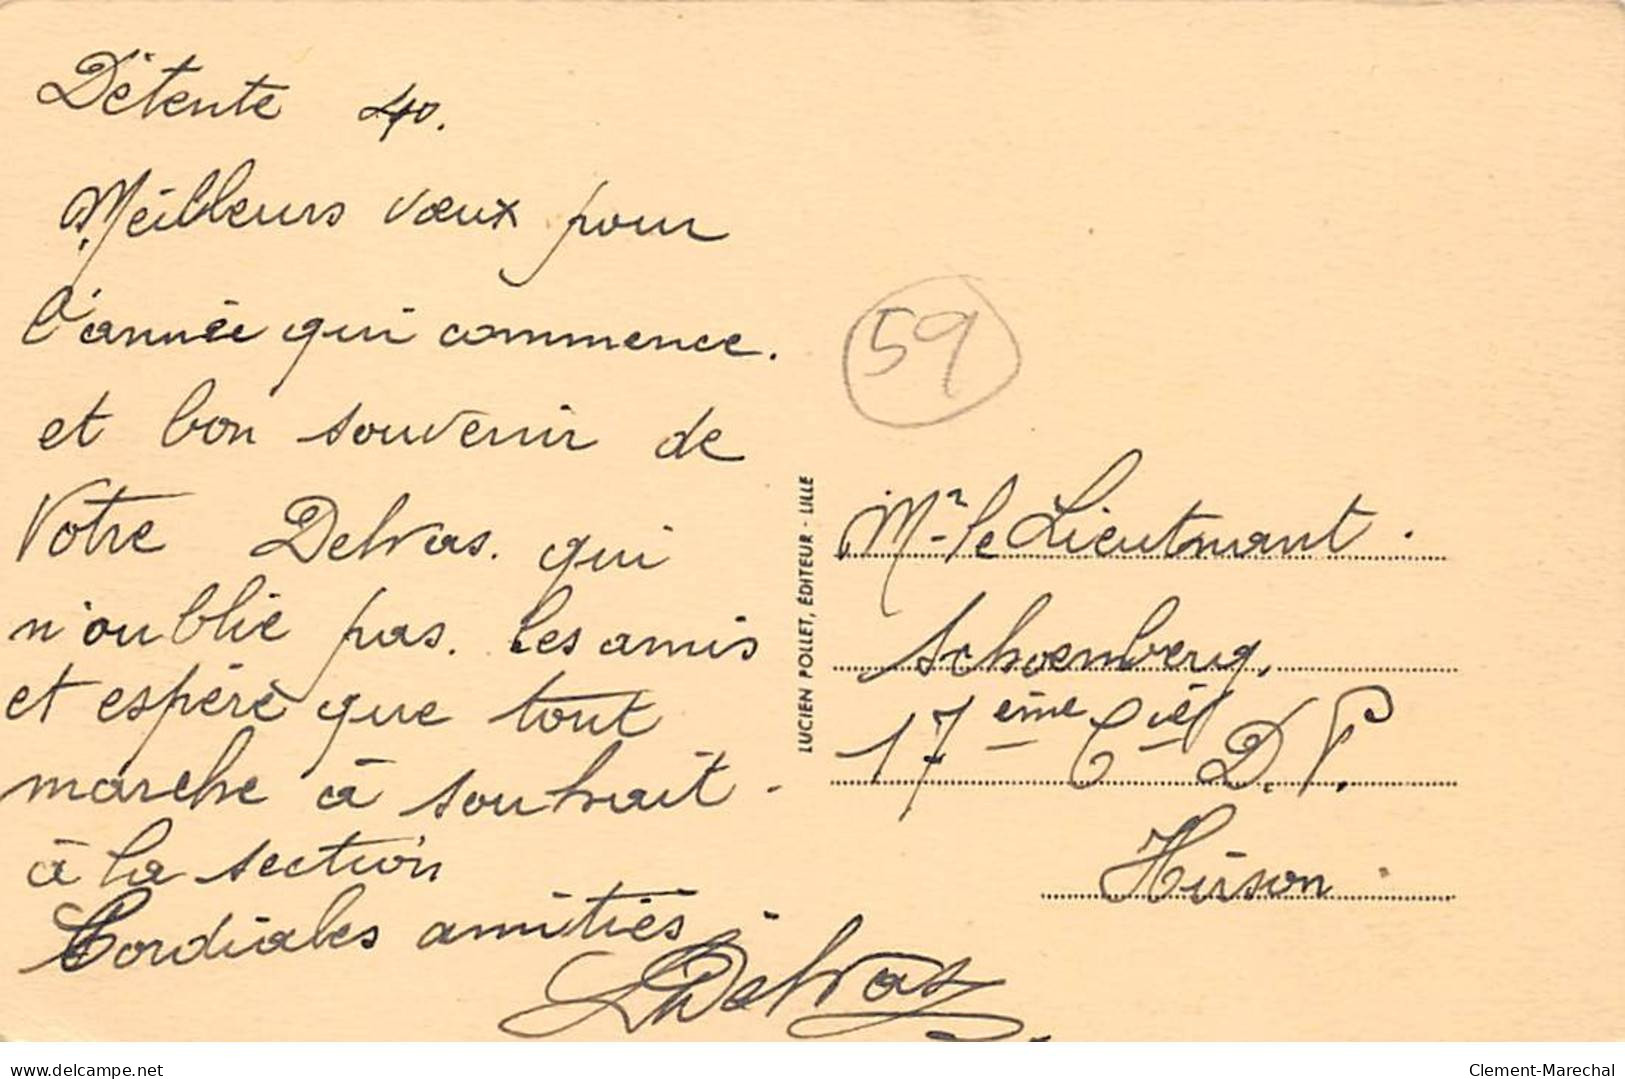 Détente 40.
Meilleurs vœux pour
l'année qui commence.
et bon souvenir de
Votre Delvas. qui
n'oublie pas. les amis
et espère que tout
marche à souhait.
à la section
Cordiales amitiés.
Delvas
59
LUCIEN POLLET, ÉDITEUR - LILLE
Mr le Lieutnant.
Schoemberg,
17ème Cie D.P.
Hirson.
www.delcampe.net
Clement-Marechal